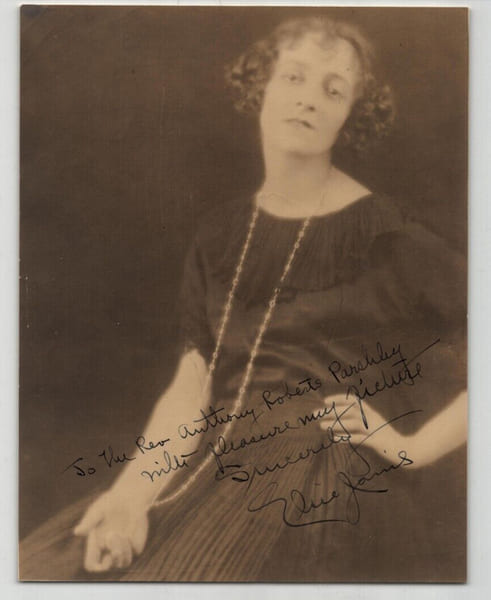 To The Rev Anthony Roberts Parshley
with pleasure my picture
Sincerely
Elsie Janis